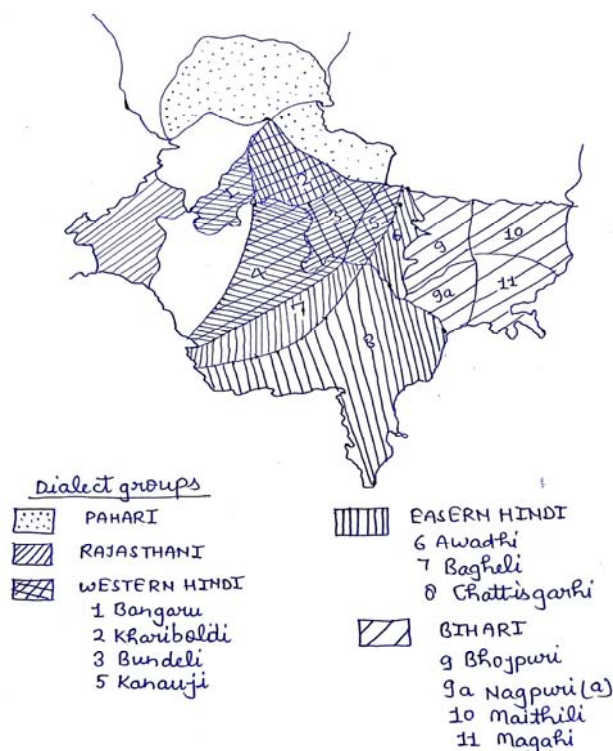 1
2
3
5
6
9
10
4
9a
11
7
8
Dialect groups
PAHARI
RAJASTHANI
WESTERN HINDI
1 Bangaru
2 Khariboldi
3 Bundeli
5 Kanauji
EASERN HINDI
6 Awadhi
7 Bagheli
8 Chattisgarhi
BIHARI
9 Bhojpuri
9a Nagpuri(a)
10 Maithili
11 Magahi